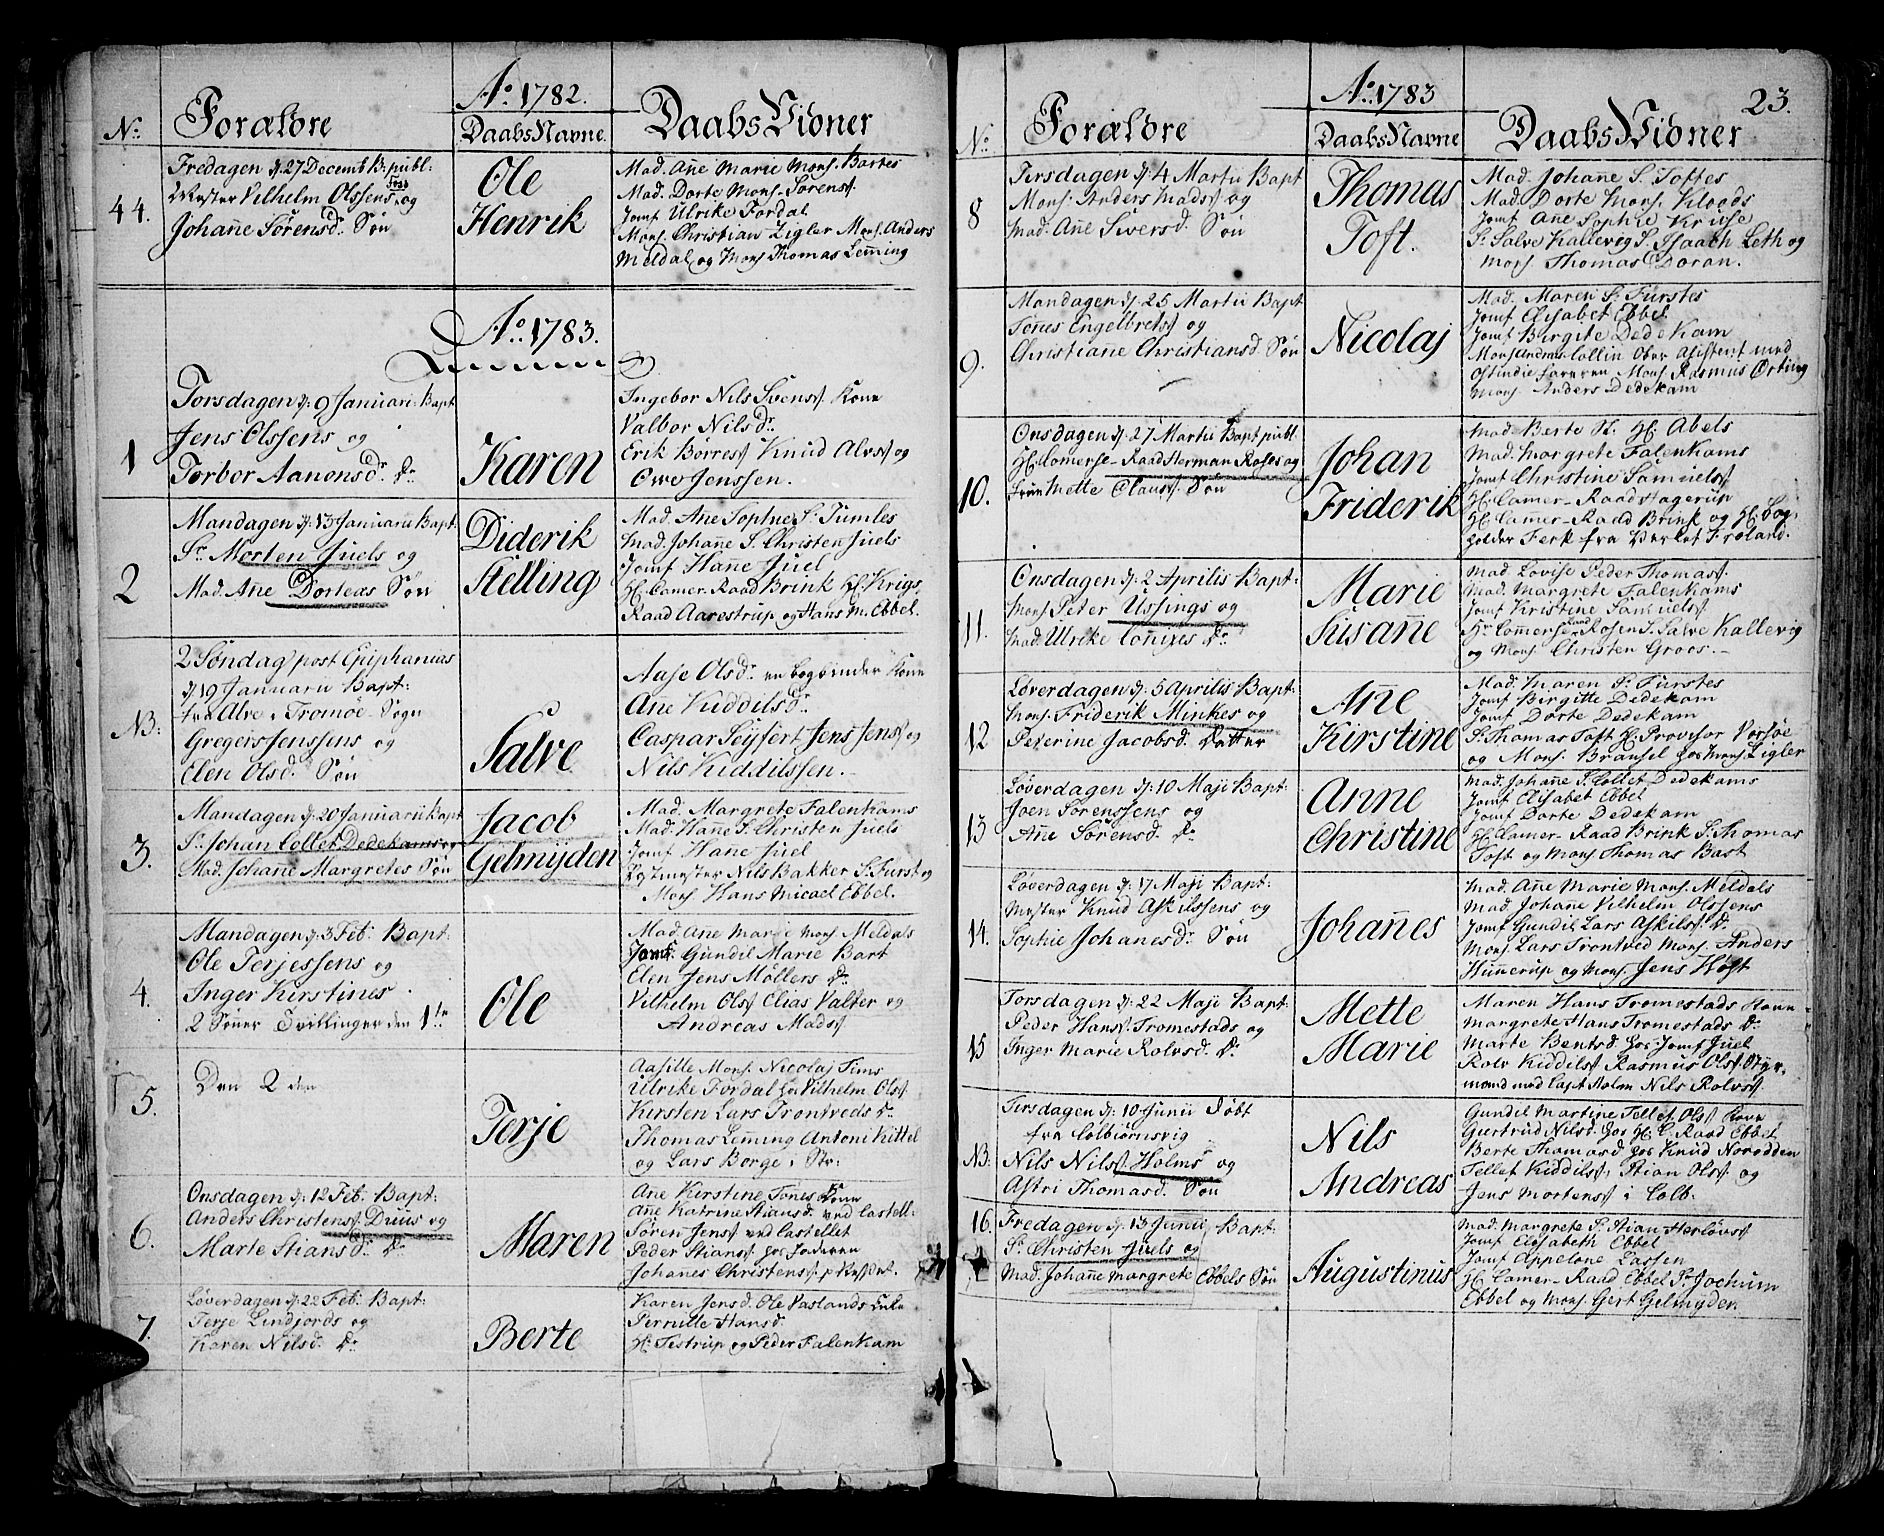 Ao. 1782.
No. Forældre DaabsNavne. Daabs Vidner
44.
Fredagen d. 27 Decemb B: publ:
Mester Vilhelm Olssens og
Johañe Sørensd. Søn
Ole
Henrik
Mad. Añe Marie Mons. Bartes
Mad. Dorte Mons. Sørenss.
Jomf Ulrike Fordal
Mons. Christian Zigler Mons. Anders
Meldal og Mons Thomas Leming
Ao. 1783.
1
Torsdagen d. 9 Januari Bapt
Jens Olssens og
Torbor Aanonsd. Dr.
Karen
Ingebor Nils Svenss. Kone
Valbor Nilsdr.
Erik Børress Knud Alvs og
Owe Jenssen.
2
Mandagen d. 13 Januarii Bapt
Sr. Morten Juels og
Mad. Añe Dorteas Søn
Diderik
Stelling
Mad. Añe Sophie S. Tumles
Mad. Johañe S. Christen Juels
Jomf Hañe Juel
H. Camer-Raad Brink H. Krigs
Raad Aarestrup og Hans M. Ebbel.
NB:
2 Søndag post Epiphanias
d. 19 Januarii Bapt:
fra Alve i Tromøe Sogn
Gregers Jenssens og
Elen Olsd. Søn
Salve
Aase Olsdr. en bogbinder Kone
Ane Kiddilsdr.
Caspar Seyfert Jens Jens og
Nils Kiddilssen.
3.
Mandagen d. 20 Januarii Bapt
Sr. Johan Collet Dedekams og
Mad. Johañe Margretes Søn
Jacob
Gelmyden
Mad. Margrete Falenkams
Mad. Hañe S. Christen Juels
Jomf Hañe Juel
Postmester Nils Bakker S. Furst og
Mons. Hans Micael Ebbel.
4.
Mandagen d. 3 Feb: Bapt.
Ole Terjessens og
Inger Kirstines
2 Søner Tvillinger den 1te
Ole
Mad. Añe Marie Mons. Meldals
Jomf. Gundil Marie Bart
Elen Jens Møllers Dr.
Vilhelm Ols Elias Valter og
Andreas Mads
5.
Den 2 den
Terje
Aasille Mons. Nicolaj Sims
Ulrike Fordal hos Vilhelm Ols
Kirsten Lars Trontveds Dr.
Thomas Leming Antoni Kittel
og Lars Borge i Str:
6.
Onsdagen d. 12 Feb. Bapt:
Anders Christens Duus og
Marte Stiansd. Dr.
Maren
Ane Kirstine Tønes Kone
Añe Katrine Stiansd. ved Castell:
Søren Jens ved Castellet
Peder Stians hos faderen
Johañes Christens
7.
Løverdagen d. 22 Feb: Bapt:
Terje Lindjords og
Karen Nilsd. Dr.
Berte
Karen Jensd. Ole Vaslands Enke
Pernille Hansd.
H. Testrup og Peder Falenkam
Ao. 1783 23.
No. Forældre DaabsNavne Daabs Vidner
8
Tirsdagen d. 4 Martii Bapt
Mons. Anders Mads og
Mad. Añe Siversd. Søn
Thomas
Toft.
Mad. Johañe S. Toftes
Mad Dorte Mons. Kloods
Jomf Añe Sophie Kruse
Sr. Salve Kallevig S. Isaach Leth og
Mons. Thomas Doran.
9.
Mandagen d. 25 Martii Bapt
Tønes Engelbrets og
Christiañe Christiansd. Søn
Nicolaj
Mad. Maren S. Fürstes
Jomf Elisabet Ebbel
Jomf Birgite Dedekam
Mons Andreas Collin Ober Assistent med
Ostindie fareren Mons Rasmus Ørting
Mons. Anders Dedekam
10.
Onsdagen d. 27 Martii Bapt publ.
H. Comerse-Raad Herman Roses og
Frue Mette Clauss. Søn
Johan
Friderik
Mad Berte St. H. Abels
Mad. Margrete Falenkams
Jomf Christine Samuels
H. Camer-Raad Hagerup
H. Camer-Raad Brink og H. Bog-
holder Ferk fra Verket Froland.
11.
Onsdagen d. 2 Aprilis Bapt:
Mons Peter Ussings og
Mad Ulrike Conixes Dr.
Marie
Susañe
Mad Lovise Peder Thomass.
Mad. Margrete Falenkams
Jomf Kristine Samuels
Hr Comerse Raad Rosen S. Salve Kallevig
og Mons Christen Groos.
12
Løverdagen d. 5 Aprilis Bapt:
Mons. Friderik Minkes og
Peterine Jacobsd. Datter
Añe
Kirstine
Mad. Maren S. Fürstes
Jomf Birgitte Dedekam
Jomf Dorte Dedekam
S. Thomas Toft H. Provisor Vorsøe
og Mons. Bransel hos Mons. Zigler
13
Løverdagen d. 10 Maji Bapt:
Joen Sørenssens og
Añe Sørensd. Dr.
Anne
Christine
Mad. Johañe S. Collet Dedekams
Jomf Elisabet Ebbel
Jomf Dorte Dedekam
H. Camer-Raad Brink S. Thomas
Toft og Mons. Thomas Bast
14.
Løverdagen d. 17 Maji Bapt:
Mester Knud Askilssens og
Sophie Johanesdr Søn
Johañes
Mad. Añe Marie Mons. Meldals
Mad. Johañe Vilhelm Olssens
Jomf Gundil Lars Askils Dr.
Mons. Lars Trontved Mons. Anders
Huñerup og Mons. Jens Høst
15
Torsdagen d. 22 Maji Bapt:
Peder Hans Tromestads og
Inger Marie Rolvsd. Dr.
Mette
Marie
Maren Hans Tromestads Kone
Margrete Hans Tromestads Dr.
Marte Bentsd. hos Jomf Juel
Rolv Kiddils Rasmus Ols Styr-
mand med Capt Holm Nils Rolvs
NB.
Tirsdagen d. 10 Junii Døbt
fra Colbiørnsvig
Nils Nils Holms og
Astri Thomasd. Søn
Nils
Andreas
Gundil Martine Tellef Ols Kone
Giertrud Nilsd. hos H. C. Raad Ebbel
Berte Thomasd. hos Knud Norodden
Tellet Kiddils, Stian Ols og
Jens Mortens i Colb.
16.
Fredagen d. 13 Junii Bapt.
Sr. Christen Juels og
Mad. Johañe Margrete Ebbels Søn
Augustinus
Mad. Margrete S. Stian Herløvs
Jomf Elisabeth Ebbel
Jomf Appelone Lassen
H. Camer-Raad Ebbel Sr Jochum
Ebbel og Mons. Gert Gelmyden